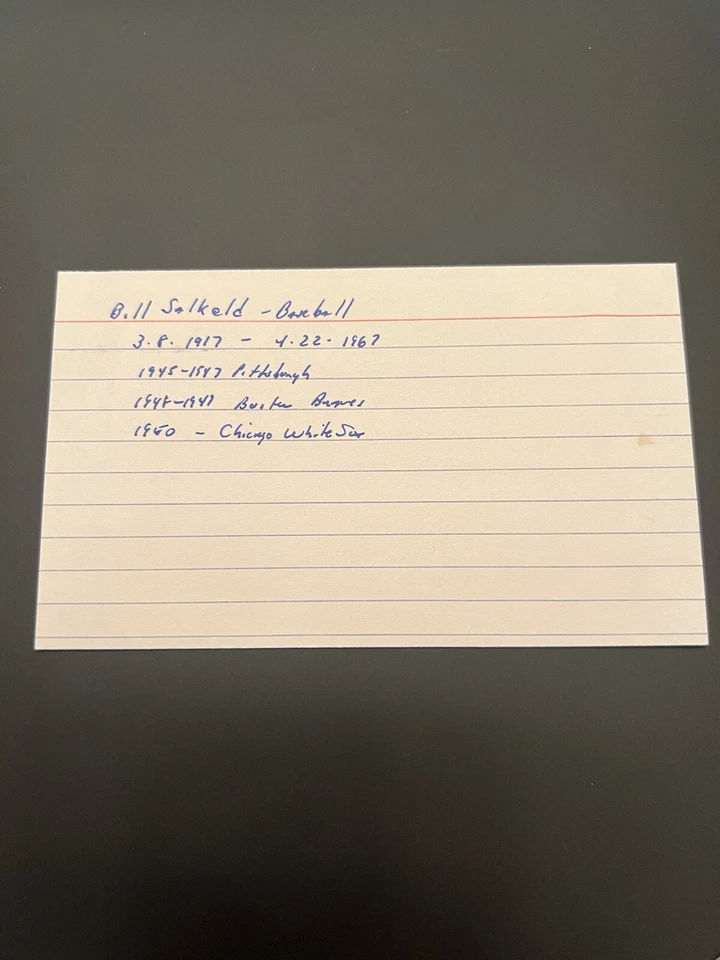 Bill Salkeld - Baseball
3.8.1917 - 4.22.1967
1945-1947 Pittsburgh
1948-1949 Boston Braves
1950 - Chicago White Sox